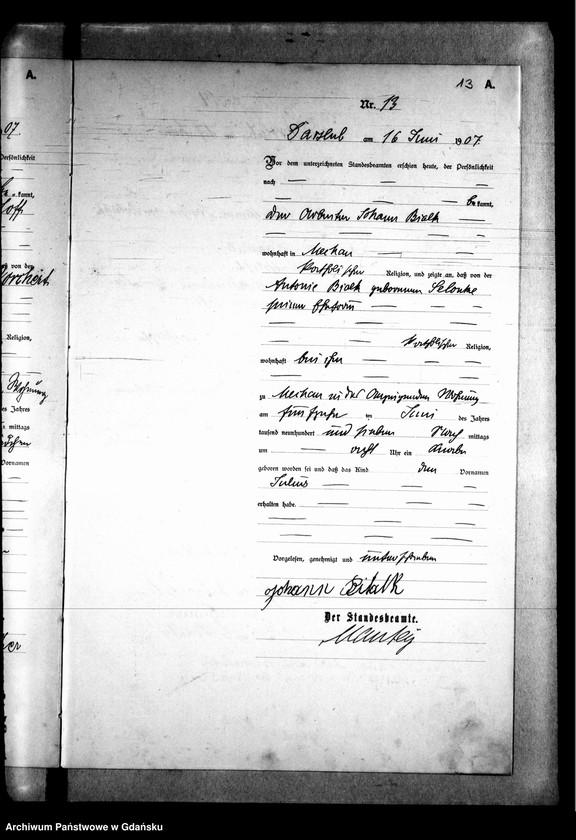 A.
07
Persönlichkeit
kannt,
daß von der
Religion,
Wohnung
des Jahres
mittags
Vornamen
13 A.
Nr. 13
Darslub am 16 Juni 1907.
Vor dem unterzeichneten Standesbeamten erschien heute, der Persönlichkeit
nach
be kannt,
der Arbeiter Johann Bialk
wohnhaft in Mechau
katholischer Religion, und zeigte an, daß von der
Antonie Bialk geborenen Selonke
seiner Ehefrau
katholischer Religion,
wohnhaft bei ihm
zu Mechau in der Wohnung
am fünfzehn im Juni des Jahres
tausend neunhundert und sieben Nach mittags
um acht Uhr ein Knabe
geboren worden sei und daß das Kind den Vornamen
Julius
erhalten habe.
Vorgelesen, genehmigt und unterschrieben
Johann Bialk
Der Standesbeamte.
Archiwum Państwowe w Gdańsku